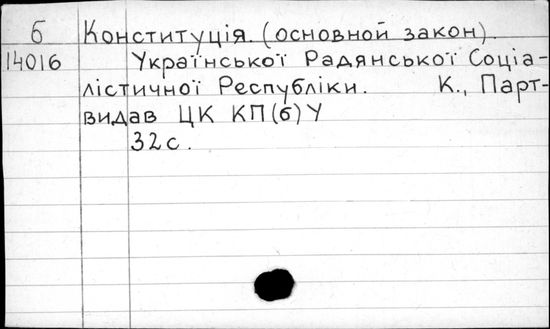 б Конституція. (основной закон).
14016 Української Радянської Соціа-
лістичної Республіки. К., Парт-
видав ЦК КП(б)У
32с.